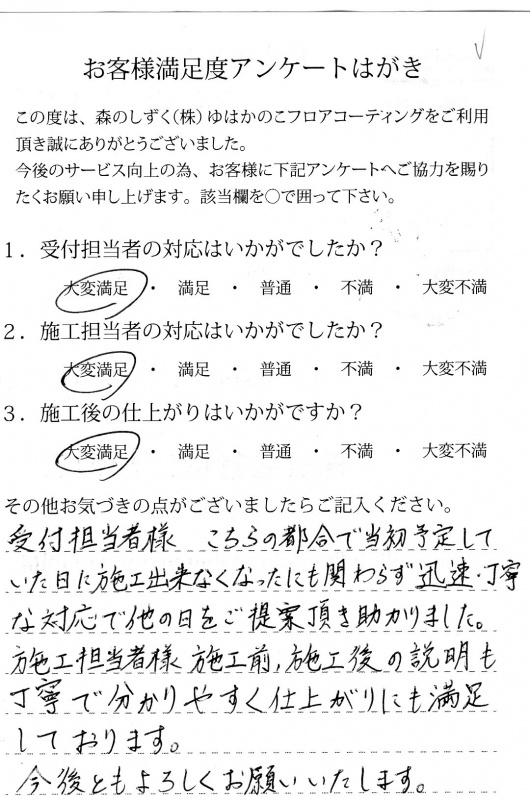 お客様満足度アンケートはがき
この度は、森のしずく(株)ゆはかのこフロアコーティングをご利用
頂き誠にありがとうございました。
今後のサービス向上の為、お客様に下記アンケートへご協力を賜り
たくお願い申し上げます。該当欄を○で囲って下さい。
1. 受付担当者の対応はいかがでしたか？
大変満足 ・ 満足 ・ 普通 ・ 不満 ・ 大変不満
2. 施工担当者の対応はいかがでしたか？
大変満足 ・ 満足 ・ 普通 ・ 不満 ・ 大変不満
3. 施工後の仕上がりはいかがですか？
大変満足 ・ 満足 ・ 普通 ・ 不満 ・ 大変不満
その他お気づきの点がございましたらご記入ください。
受付担当者様 こちらの都合で当初予定して
いた日に施工出来なくなったにも関わらず迅速・丁寧
な対応で他の日をご提案頂き助かりました。
施工担当者様 施工前、施工後の説明も
丁寧で分かりやすく仕上がりにも満足
しております。
今後ともよろしくお願いいたします。